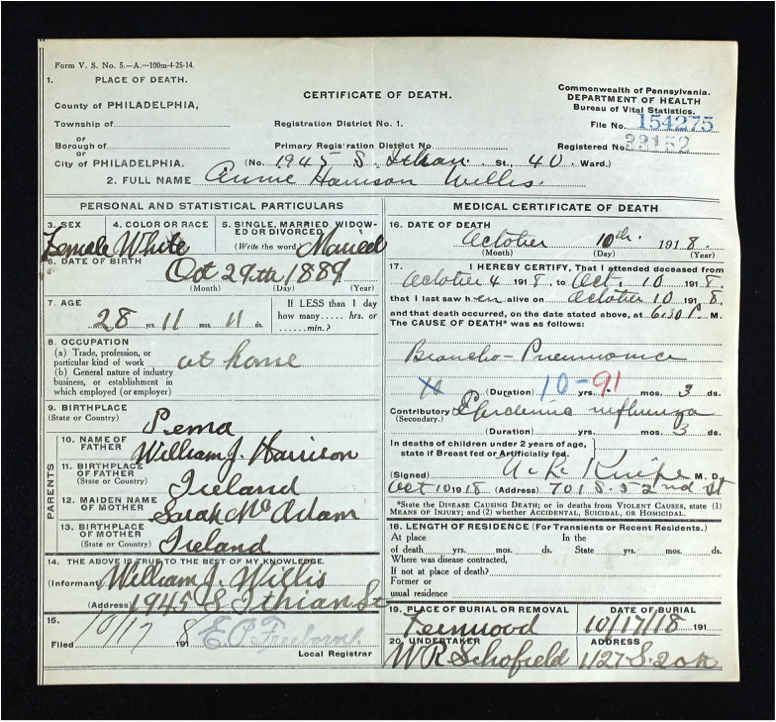 Form V. S. No. 5.—A.—100m-4-25-14.
1. PLACE OF DEATH.
County of PHILADELPHIA,
Township of
or
Borough of
or
City of PHILADELPHIA.
CERTIFICATE OF DEATH.
Registration District No. 1.
Primary Registration District No.
Commonwealth of Pennsylvania.
DEPARTMENT OF HEALTH
Bureau of Vital Statistics.
File No. 154275
Registered No.
(No. 1945 S. Ithan St., 40 Ward.)
2. FULL NAME Annie Harrison Willis.
PERSONAL AND STATISTICAL PARTICULARS
3. SEX
Female
4. COLOR OR RACE
White
5. SINGLE, MARRIED, WIDOW-
ED OR DIVORCED
(Write the word) Married
6. DATE OF BIRTH
Oct 29th 1889
(Month) (Day) (Year)
7. AGE
28 yrs. 11 mos. 11 ds.
If LESS than 1 day
how many...... hrs. or
......min.?
8. OCCUPATION
(a) Trade, profession, or
particular kind of work at home
(b) General nature of industry
business, or establishment in
which employed (or employer)
9. BIRTHPLACE
(State or Country)
Penna
PARENTS
10. NAME OF
FATHER William J. Harrison
11. BIRTHPLACE
OF FATHER
(State or Country) Ireland
12. MAIDEN NAME
OF MOTHER Sarah McAdam
13. BIRTHPLACE
OF MOTHER
(State or Country) Ireland
14. THE ABOVE IS TRUE TO THE BEST OF MY KNOWLEDGE.
(Informant) William J. Willis
(Address) 1945 S Ithian St
15.
Filed 10/17 1918 E P Freeborn
Local Registrar
MEDICAL CERTIFICATE OF DEATH
16. DATE OF DEATH
October 10th. 1918.
(Month) (Day) (Year)
17. I HEREBY CERTIFY, That I attended deceased from
October 4 1918, to Oct. 10 1918.
that I last saw her alive on October 10 1918.
and that death occurred, on the date stated above, at 6:30 P M.
The CAUSE OF DEATH* was as follows:
Broncho-Pneumonia
10 10-91
(Duration) yrs. mos. 3 ds.
Contributory Epidemic influenza
(Secondary.)
(Duration) yrs. mos. 3 ds.
In deaths of children under 2 years of age,
state if Breast fed or Artificially fed.
(Signed) M. D.
Oct 10 1918 (Address) 701 S. 52nd St
*State the DISEASE CAUSING DEATH; or in deaths from VIOLENT CAUSES, state (1)
MEANS OF INJURY; and (2) whether ACCIDENTAL, SUICIDAL, OR HOMICIDAL.
18. LENGTH OF RESIDENCE (For Transients or Recent Residents.)
At place
of death yrs. mos. ds.
In the
State yrs. mos. ds.
Where was disease contracted,
If not at place of death?
Former or
usual residence
19. PLACE OF BURIAL OR REMOVAL
Fernwood
DATE OF BURIAL
10/17/18 191
20. UNDERTAKER
W R Schofield
ADDRESS
1127 S. 20th